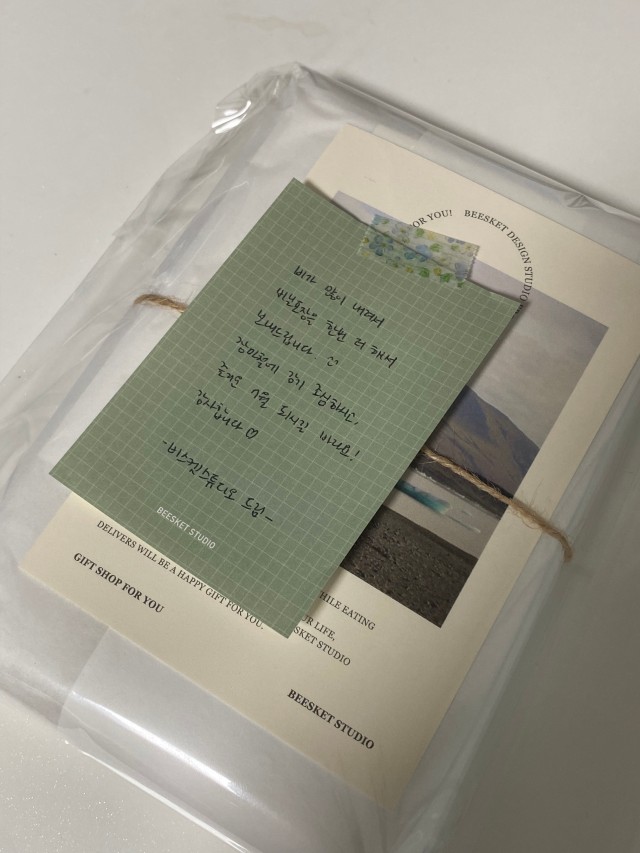 FOR YOU! BEESKET DESIGN STUDIO
비가 많이 내려서
비닐포장을 한번 더 해서
보내드립니다 ^^
장마철에 감기 조심하시고,
즐거운 7월 되시길 바라요!
감사합니다 ♡
-비스켓스튜디오 드림-
BEESKET STUDIO
DELIVERS WILL BE A HAPPY GIFT FOR YOU.
GIFT SHOP FOR YOU
WHILE EATING
OUR LIFE,
BEESKET STUDIO
BEESKET STUDIO